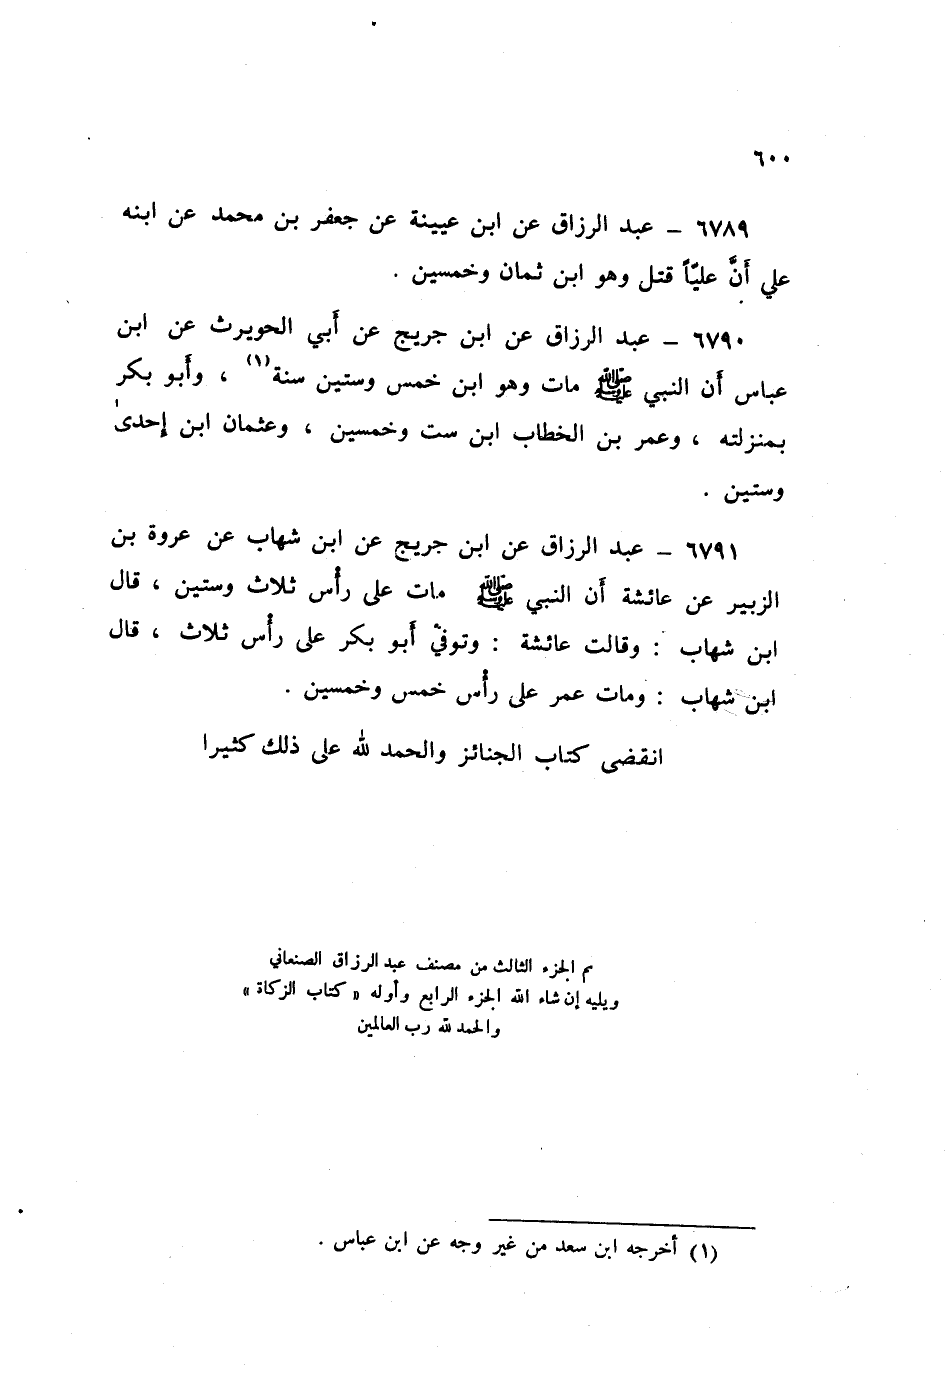 ٦٠٠
٦٧٨٩ – عبد الرزاق عن ابن عيينة عن جعفر بن محمد عن ابنه
علي أَنَّ عليّاً قتل وهو ابن ثمان وخمسين .
٦٧٩٠ – عبد الرزاق عن ابن جريج عن أَبي الحويرث عن ابن
عباس أَن النبي ﷺ مات وهو ابن خمس وستين سنة(١) ، وأَبو بكر
بمنزلته ، وعمر بن الخطاب ابن ست وخمسين ، وعثمان ابن إحدى
وستين .
٦٧٩١ – عبد الرزاق عن ابن جريج عن ابن شهاب عن عروة بن
الزبير عن عائشة أَن النبي ﷺ مات على رأْس ثلاث وستين ، قال
ابن شهاب : وقالت عائشة : وتوفيّ أَبو بكر على رأْس ثلاث ، قال
ابن شهاب : ومات عمر على رأْس خمس وخمسين .
انقضى كتاب الجنائز والحمد لله على ذلك كثيرا
تم الجزء الثالث من مصنف عبد الرزاق الصنعاني
ويليه إن شاء الله الجزء الرابع وأوله « كتاب الزكاة »
والحمد لله رب العالمين
(١) أخرجه ابن سعد من غير وجه عن ابن عباس .